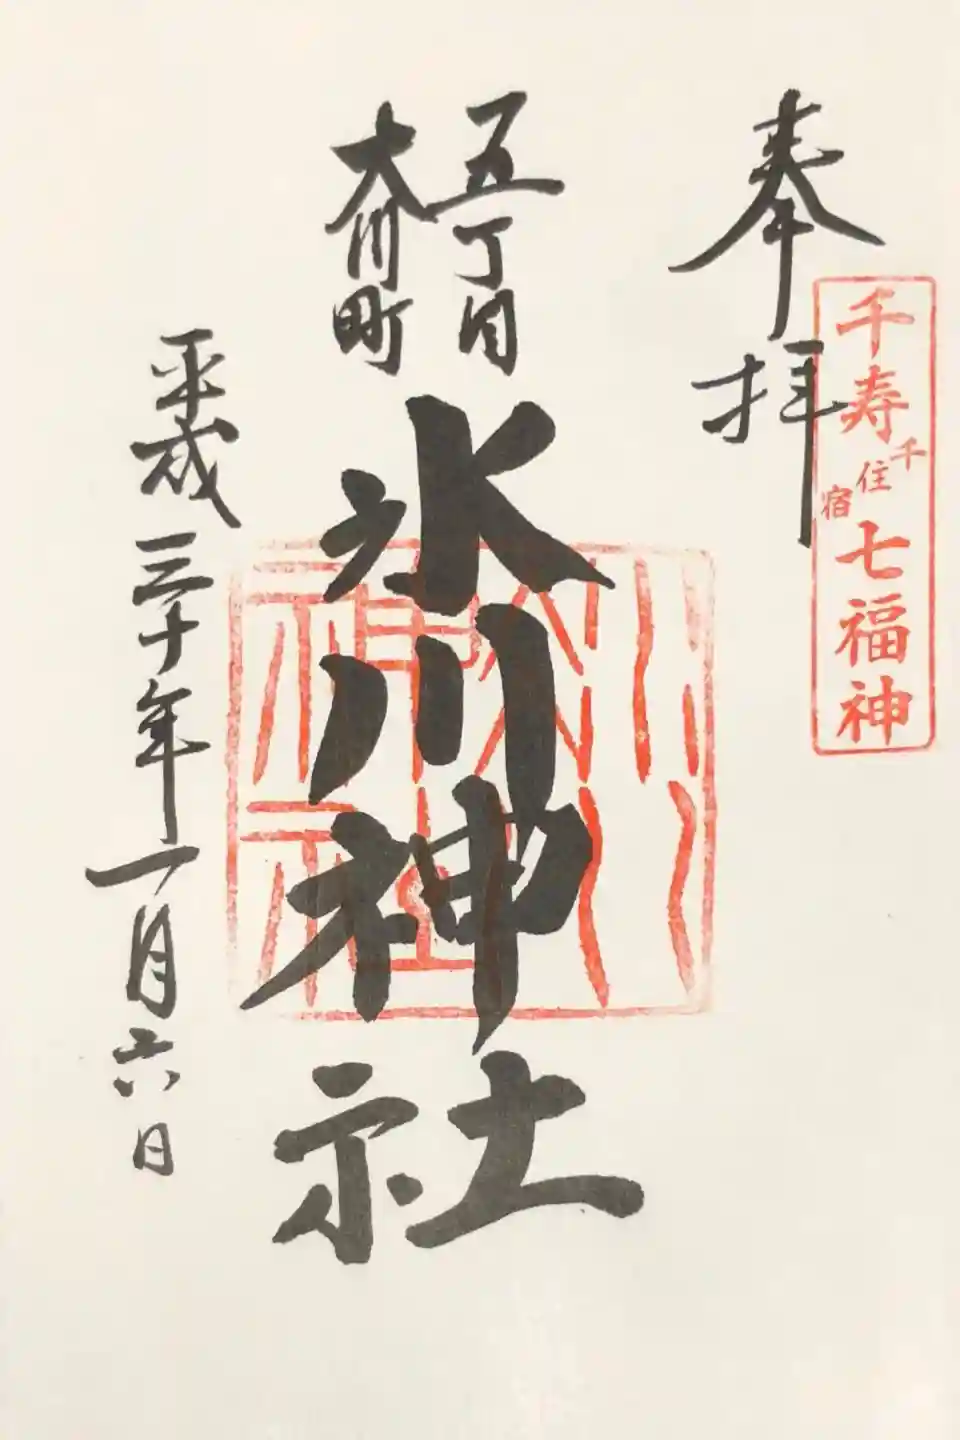 奉拝
千寿七福神
千住宿
五丁目
大川町
氷川神社
平成三十年一月六日
氷川神社